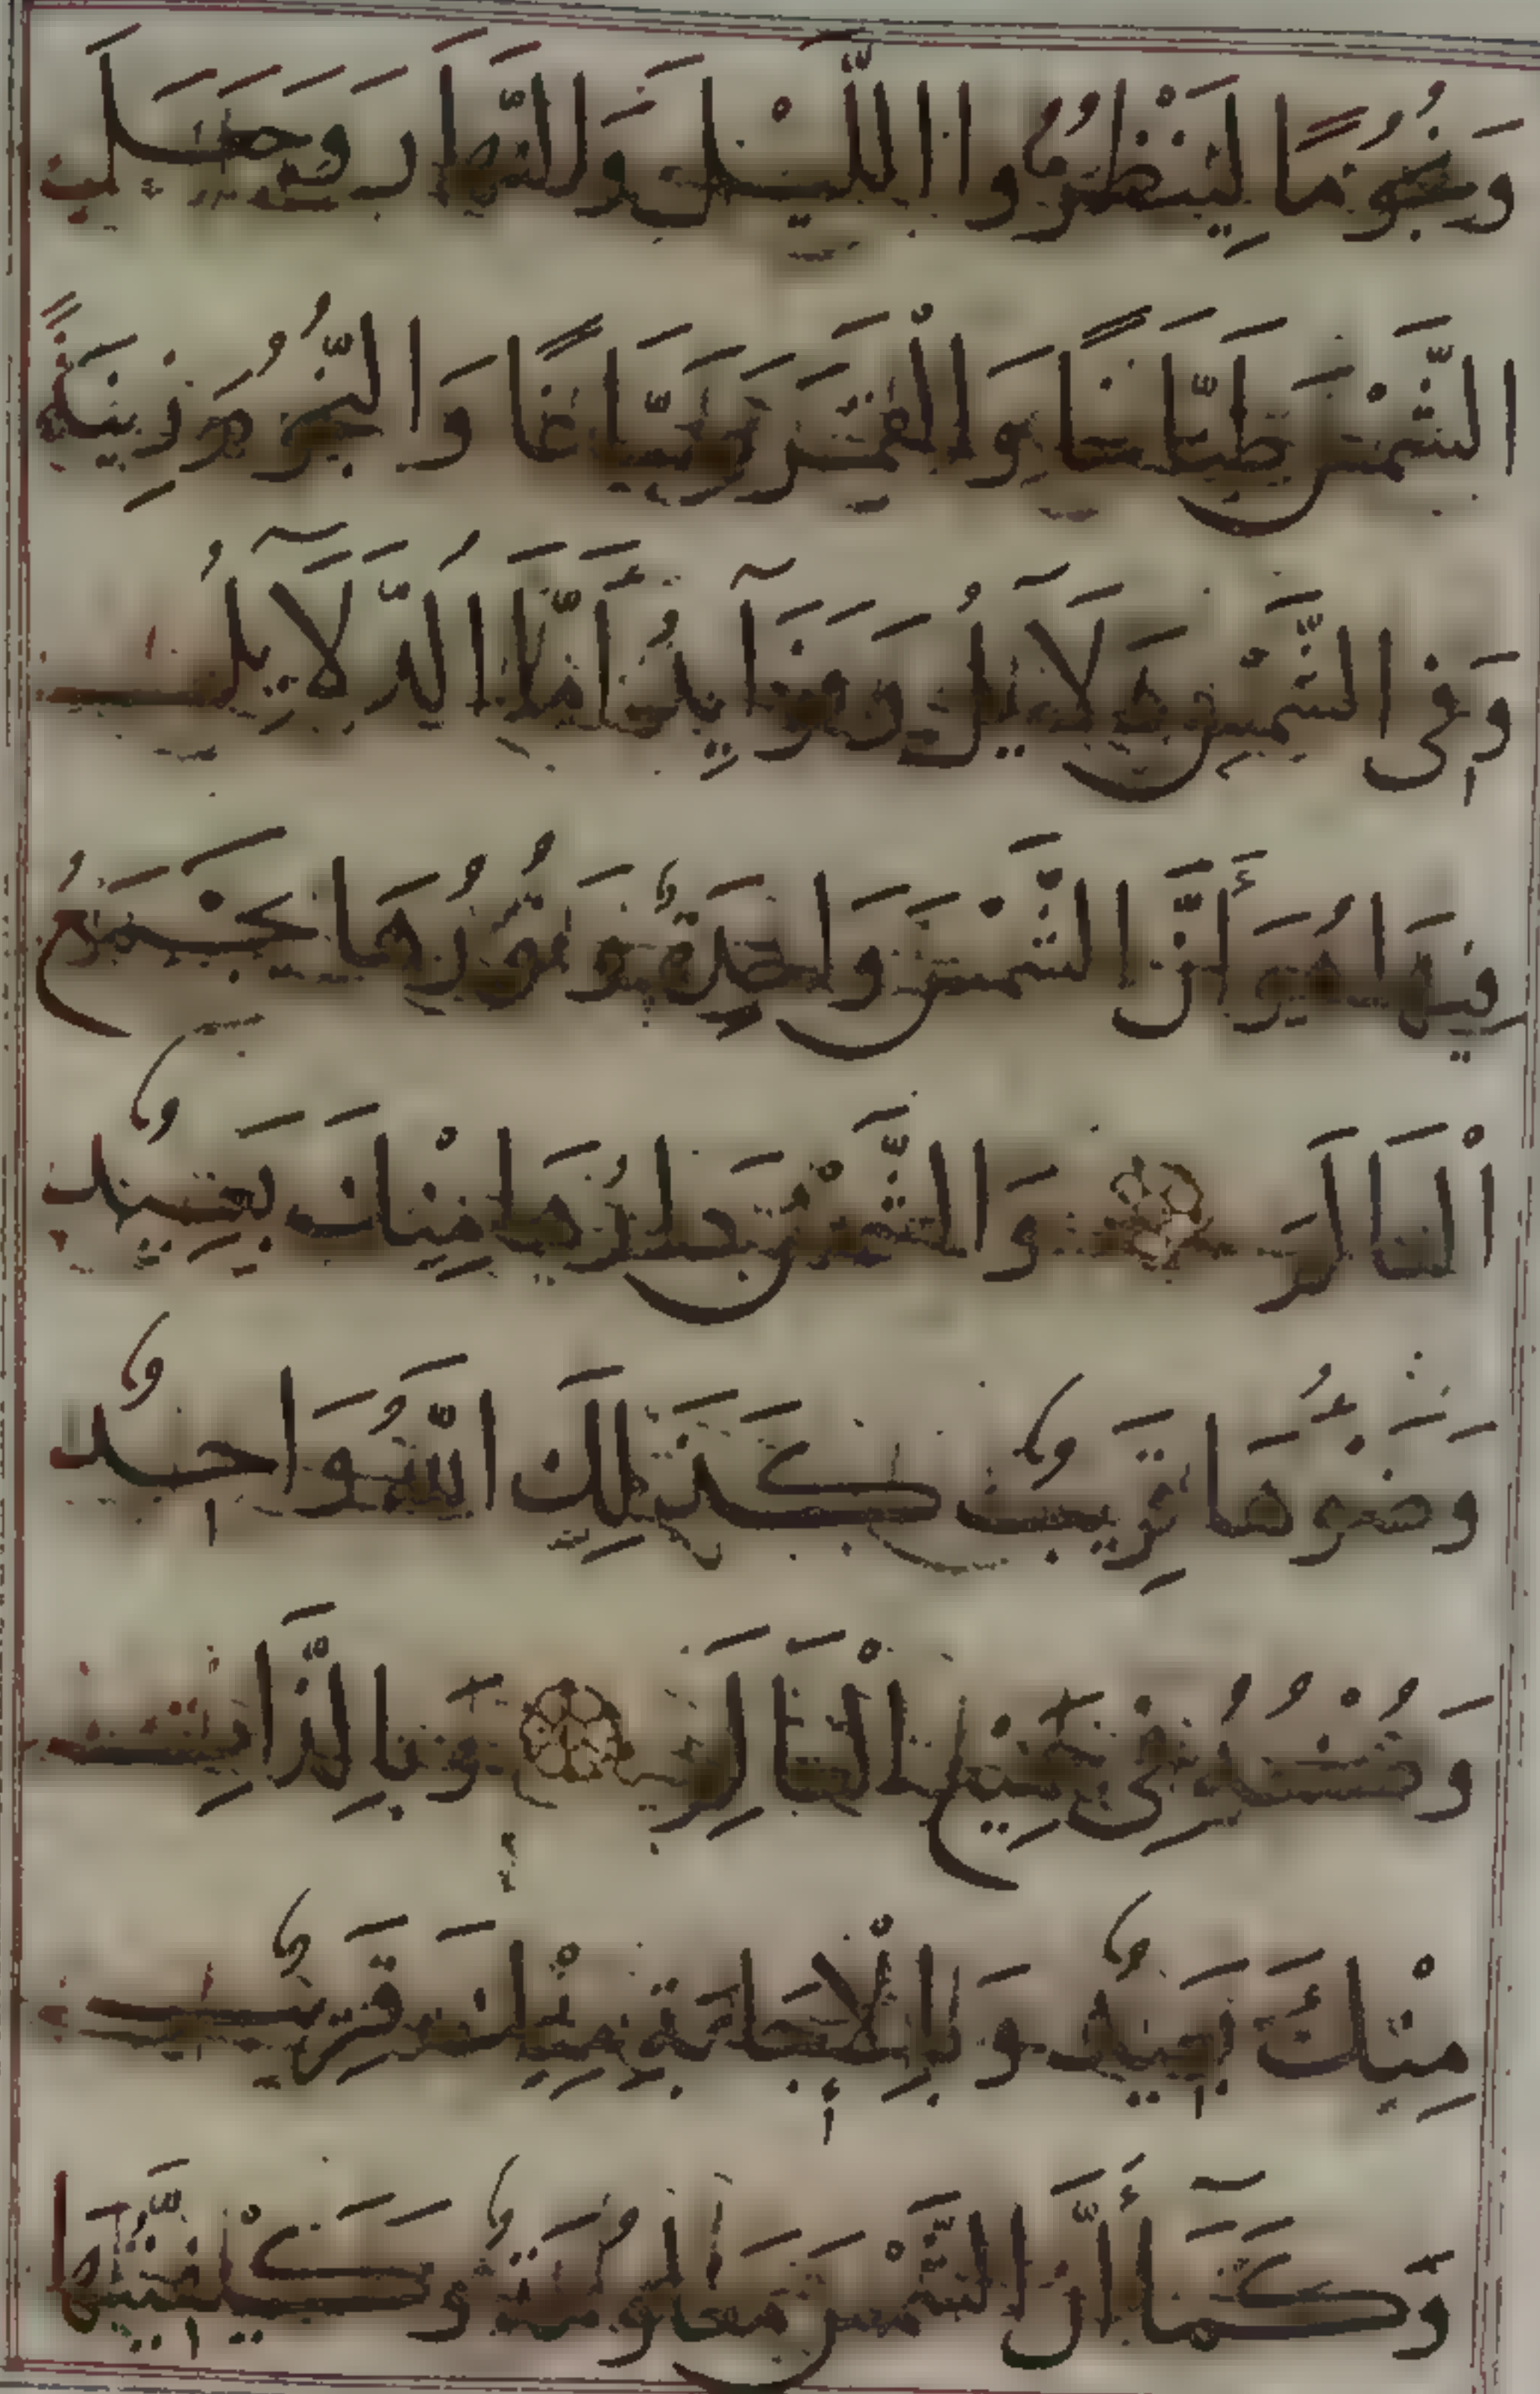 وَنُجُومًا لِيَنْظُرُوا اللَّيْلَ وَالنَّهَارَ وَجَعَلَ
الشَّمْسَ طَبَّاخًا وَالْقَمَرَ صَبَّاغًا وَالنُّجُومَ زِينَةً
وَفِى الشَّمْسِ دَلَآيِلُ وَفَوَآيِدُ أَمَّا الدَّلَآيِلُ
فِيهَا هُوَ أَنَّ الشَّمْسَ وَاحِدَةٌ وَنُورُهَا يَجْمَعُ
اْلعَالَمَ وَالشَّمْسُ حَارُهَا مِنْكَ بَعِيدٌ
وَضَوْءُهَا قَرِيبٌ كَذَلِكَ اللَّهُ وَاحِدٌ
وَصُنْعُهُ فِى جَمِيْعِ اْلعَالَمِ وَبِالذَّاتِ
مِنْكَ بَعِيدٌ وَبِالْإِجَابَةِ مِنْكَ قَرِيبٌ
وَكَمَآ أَنَّ الشَّمْسَ مَعْلُومَةٌ وَكَيْفِيَّتُهَا